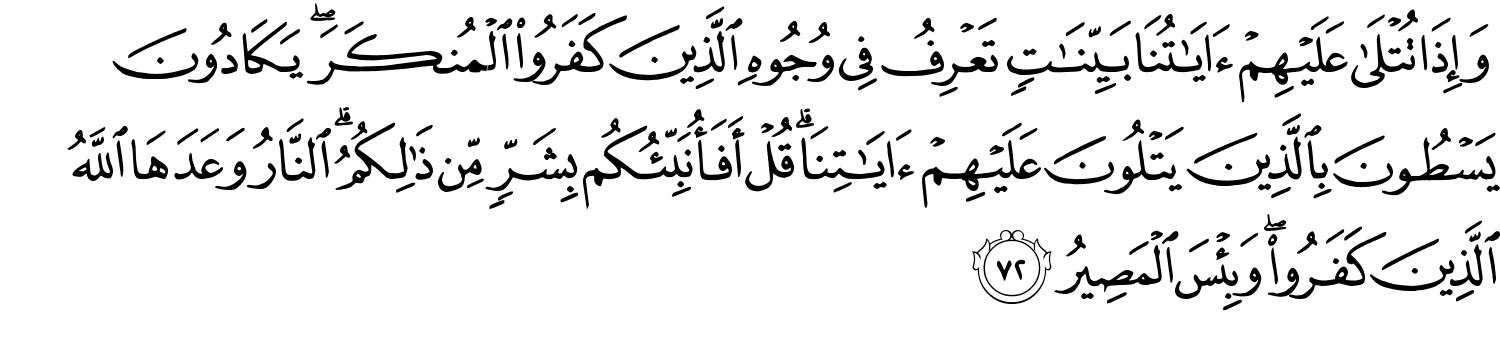 وَإِذَا تُتْلَىٰ عَلَيْهِمْ ءَايَـٰتُنَا بَيِّنَـٰتٍ تَعْرِفُ فِى وُجُوهِ ٱلَّذِينَ كَفَرُوا۟ ٱلْمُنكَرَ ۖ يَكَادُونَ
يَسْطُونَ بِٱلَّذِينَ يَتْلُونَ عَلَيْهِمْ ءَايَـٰتِنَا ۗ قُلْ أَفَأُنَبِّئُكُم بِشَرٍّ مِّن ذَٰلِكُمُ ۗ ٱلنَّارُ وَعَدَهَا ٱللَّهُ
ٱلَّذِينَ كَفَرُوا۟ ۖ وَبِئْسَ ٱلْمَصِيرُ ٧٢